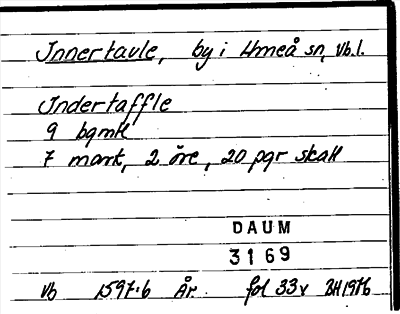 Innertavle, by i Umeå sn, Vb.l.
Undertaffle
9 bqmtl
7 mark, 2 öre, 20 pgr skatt
DAUM
3169
Vb 1597:6 År fol 33v BH1976